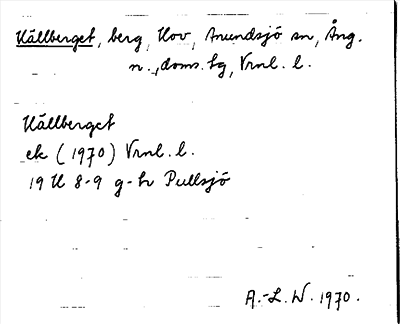 Källberget, berg, Hov, Anundsjö sn, Ång.
n., doms. hg, Vrnl. l.
Källberget
ek (1970) Vrnl. l.
19 H 8-9 g-h Pullsjö
A.-L. W. 1970.